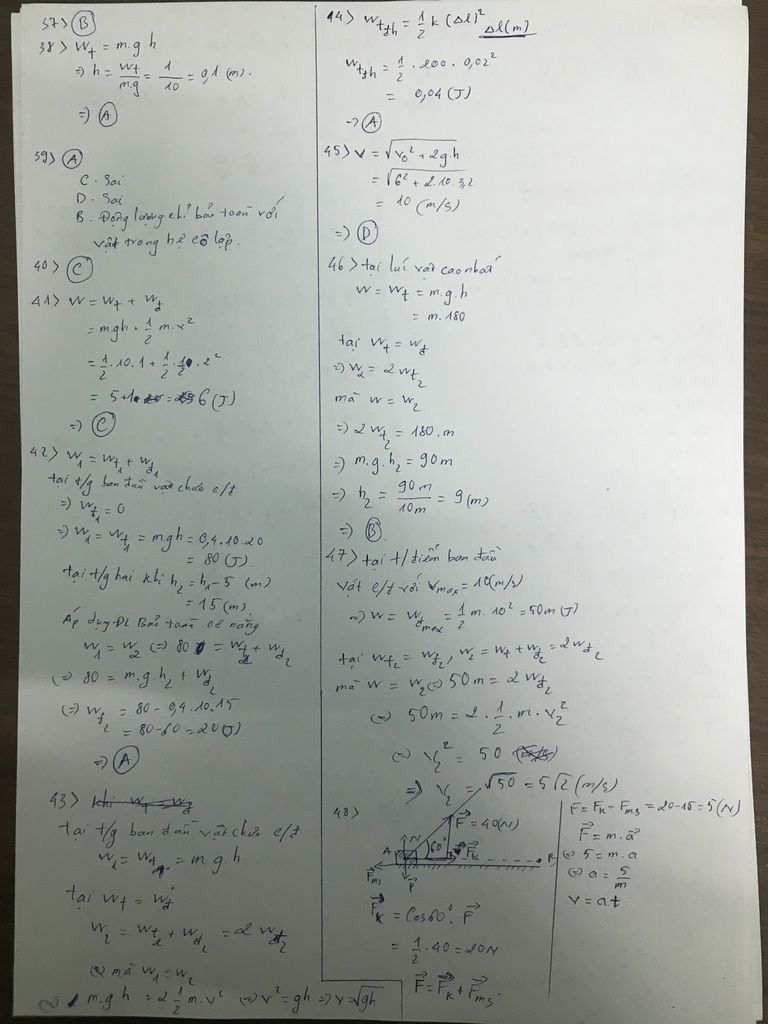 37> B
38> Wt = m.g.h
=> h = Wt/m.g = 1/10 = 0,1 (m).
=> A
39> A
C. Sai
D. Sai
B. Động lượng chỉ bảo toàn với
vật trong hệ cô lập.
40> C
41> W = Wt + Wđ
= mgh + 1/2 m.v²
= 1/2.10.1 + 1/2.1/2.2²
= 5+1 = 6 (J)
=> C
42> W1 = Wt1 + Wđ1
tại t/g ban đầu vật chưa c/đ
=> Wđ1 = 0
=> W1 = Wt1 = mgh = 0,4.10.20
= 80 (J).
Tại t/g hai khi h2 = h1 - 5 (m)
= 15 (m).
Áp dụng ĐL Bảo toàn cơ năng
W1 = W2 <=> 80 = Wt2 + Wđ2
<=> 80 = m.g.h2 + Wđ2
<=> Wđ2 = 80 - 0,4.10.15
= 80-60 = 20 (J)
=> A
43> Khi Wt = Wđ
Tại t/g ban đầu vật chưa c/đ
W1 = Wt1 = m.g.h
Tại Wt = Wđ
W2 = Wt2 + Wđ2 = 2Wđ2
mà W1 = W2
m.g.h = 2 1/2 m.v² <=> v² = gh => v = √gh
44> Wtđh = 1/2 k (Δl)² Δl(m)
Wtđh = 1/2 . 200 . 0,02²
= 0,04 (J)
=> A
45> v = √v0² + 2g.h
= √6² + 2.10.3,2
= 10 (m/s)
=> D
46> tại lúc vật cao nhất
W = Wt = m.g.h
= m.180
tại Wt = Wđ
=> W2 = 2Wt2
mà W = W2
=> 2Wt2 = 180.m
=> m.g.h2 = 90m
=> h2 = 90m/10m = 9 (m)
=> B
47> tại t/điểm ban đầu
vật c/đ với Vmax = 10 (m/s)
=> W = Wđmax = 1/2 m.10² = 50m (J)
tại Wt2 = Wđ2, W2 = Wt + Wđ2 = 2Wđ2
mà W = W2 <=> 50m = 2Wđ2
<=> 50m = 2.1/2.m.v2²
<=> v2² = 50
=> v2 = √50 = 5√2 (m/s)
48>
N
F = 40(N)
A
60°
Fk
B
Fms
P
Fk = Cos60°. F
= 1/2 . 40 = 20N
F = Fk + Fms.
F = Fk - Fms = 20-15 = 5 (N)
F = m.a
<=> 5 = m.a
<=> a = 5/m
v = a.t